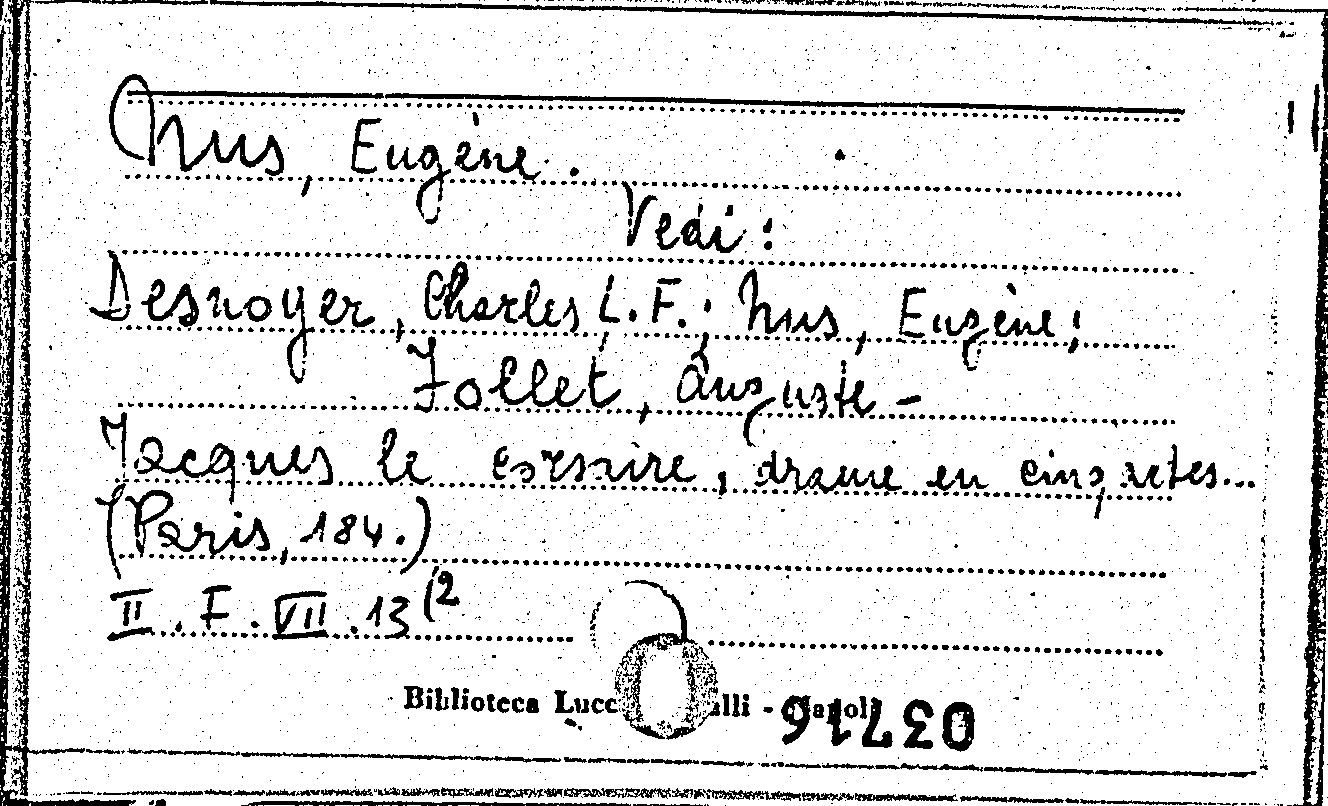 Nus, Eugène.
Vedi:
Desnoyer, Charles L.F.; Nus, Eugène;
Follet, Auguste -
Jacques le corsaire, drame en cinq actes...
(Paris, 184.)
II. F. VII. 13 (2
Biblioteca Lucc alli - Napoli
03716